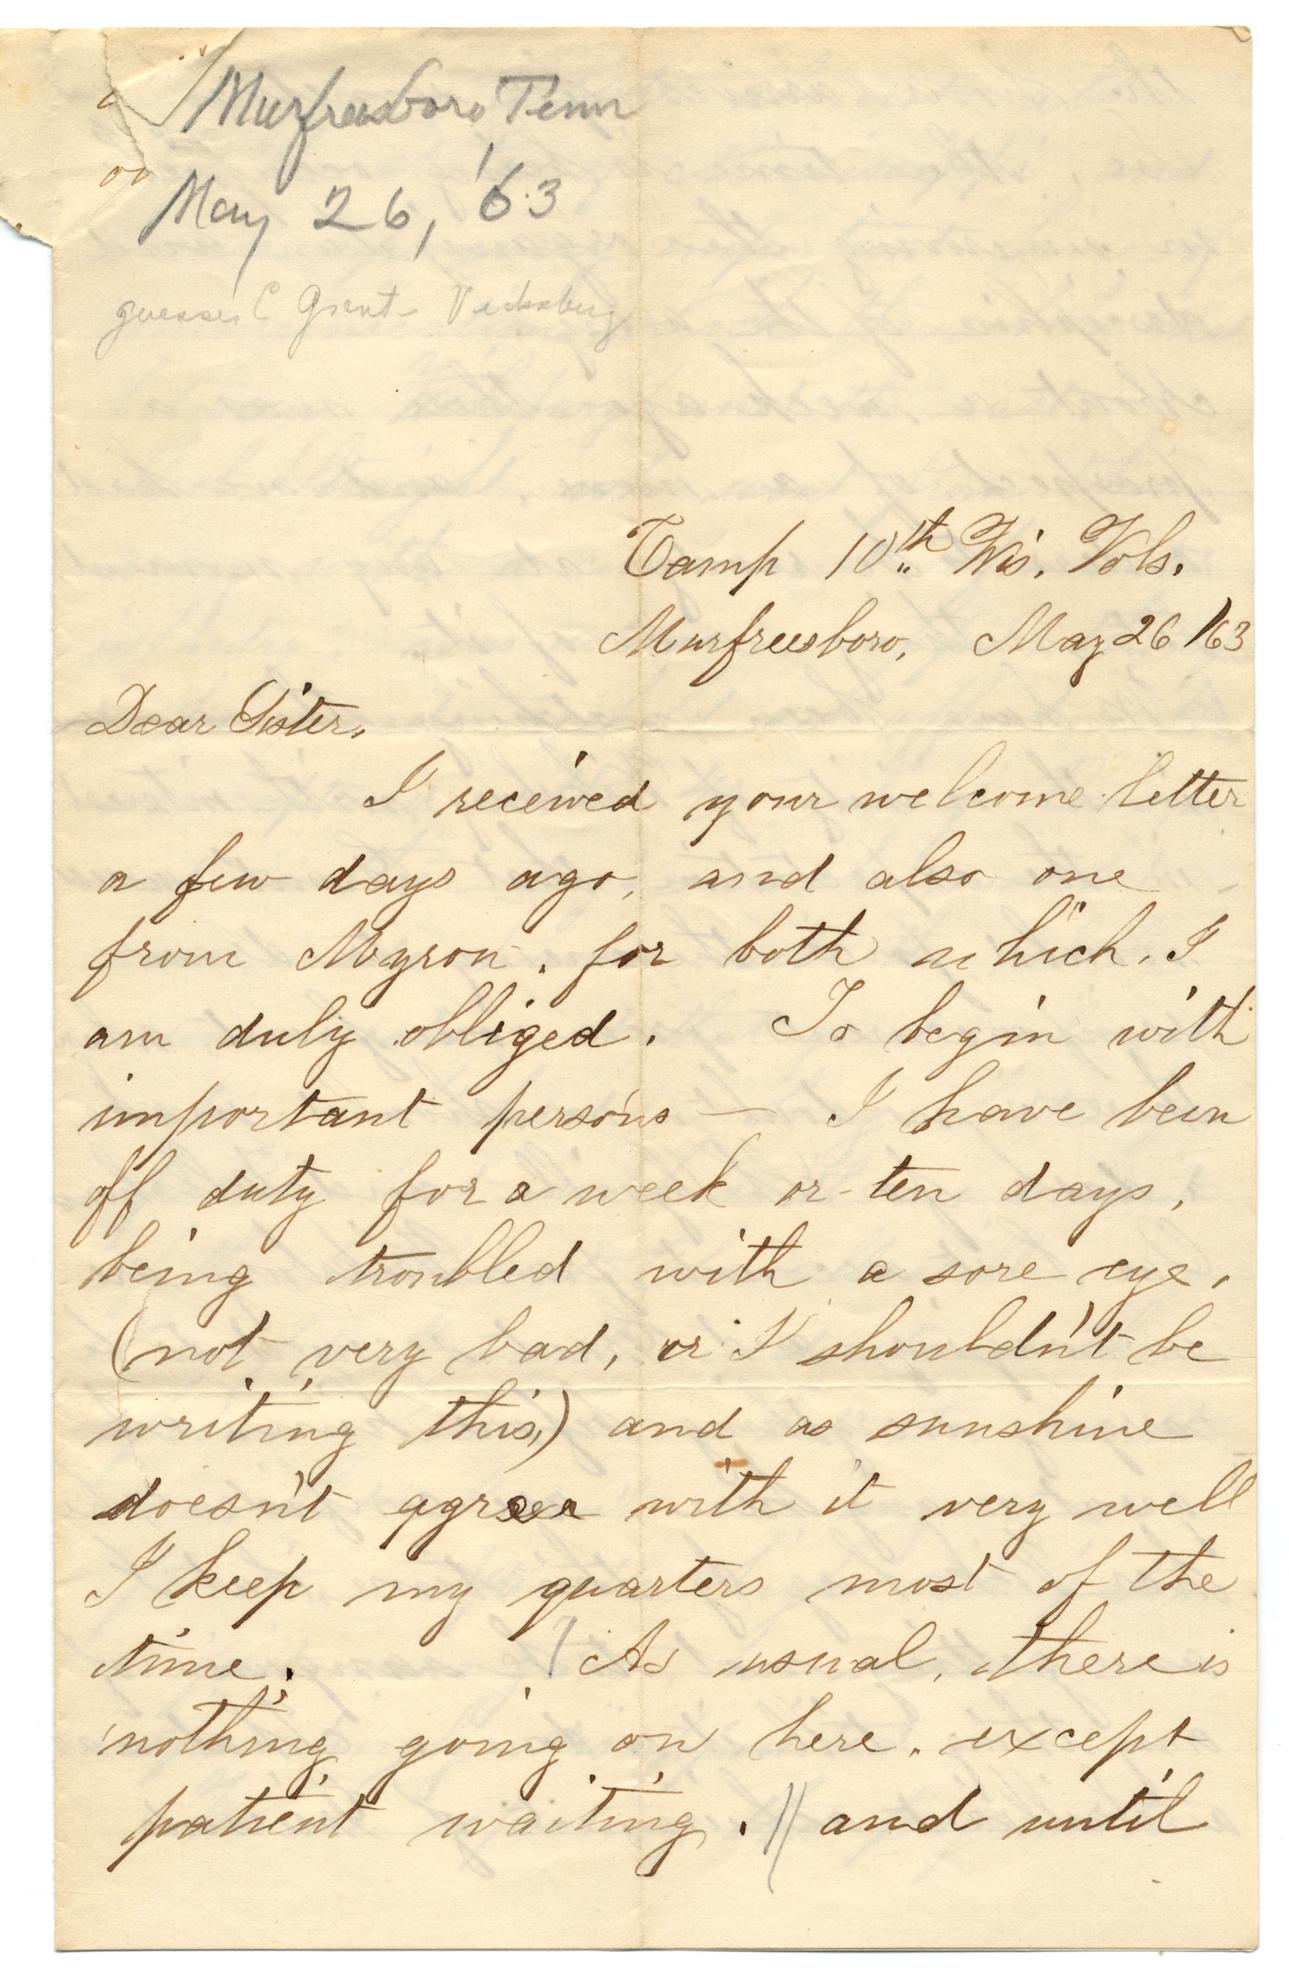 Murfreesboro Tenn
May 26, '63
guesses Grant Vicksburg
Camp 10th Wis. Vols.
Murfreesboro, May 26 /63
Dear Sister,
I received your welcome letter
a few days ago, and also one
from Myron, for both which, I
am duly obliged. To begin with
important persons — I have been
off duty for a week or ten days,
being troubled with a sore eye,
(not very bad, or I shouldn't be
writing this,) and as sunshine
doesn't agree with it very well
I keep my quarters most of the
time. As usual, there is
nothing going on here, except
patient waiting. // and until